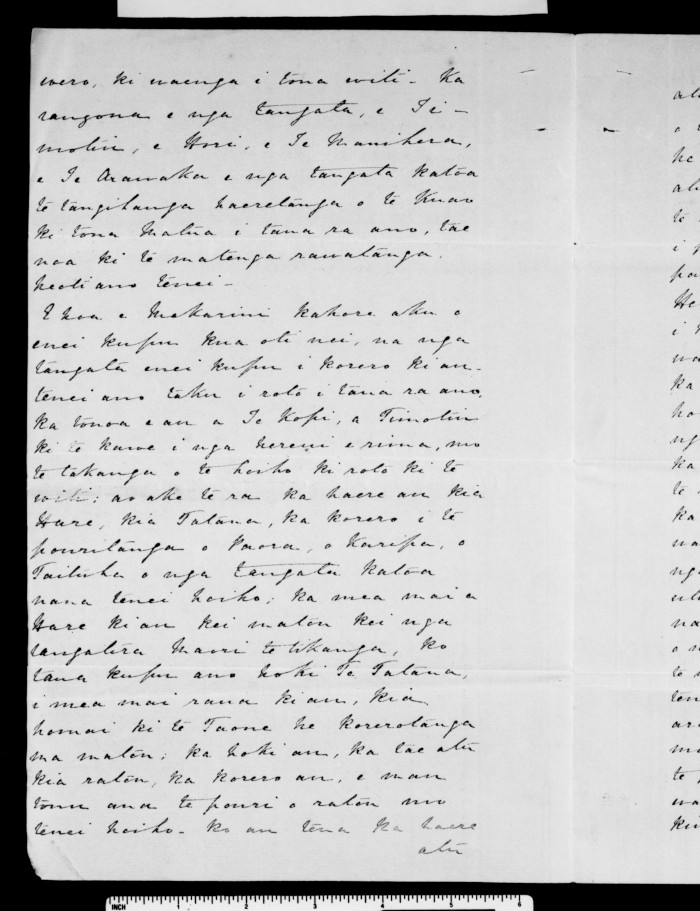 wero, ki waenga i tona witi - Ka
rangona e nga tangata, e Ti -
motiu, e Hori, e Te Manihera,
e Te Arawaka e nga tangata katoa
te tangihanga haeretanga o te Kuao
ki tona Matua i taua ra ano, tae
noa ki te matenga rawatanga.
heoti ano tenei -
E hoa e Makarini kahore aku o
enei kupu kua oti nei, na nga
tangata enei kupu i korero ki au -
tenei ano taku i roto i taua ra ano,
ka tonoa e au a Te Kopi, a Timotiu
ki te kawe i nga hereni e rima, mo
te takanga o te hoiho ki roto ki te
witi: ao ake te ra ka haere au kia
Hare, kia Tatana, ka korero i te
pouritanga o Paora, o Karipa, o
Taituha o nga tangata katoa
nana tenei hoiho; ka mea mai a
Hare ki au kei matou kei nga
rangatira Maori te tikanga, ko
tana kupu ano hoki Te Tatana,
i mea mai raua ki au, kia
homai ki te Taone he korerotanga
ma matou; ka hoki au, ka tae atu
kia ratou, ka korero au, e mau
tonu ana te pouri o ratou mo
tenei hoiho - ko au tena ka haere
atu